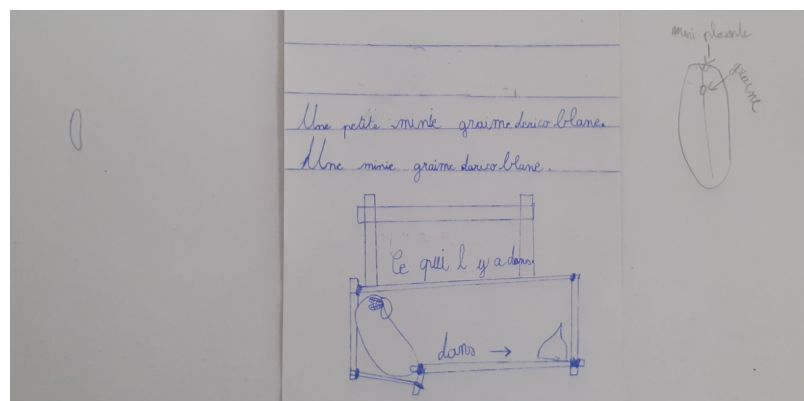 mini plante
graine
Une petite minie graime darico blanc.
Une minie graime darico blanc.
Ce qui l y a dans
dans →